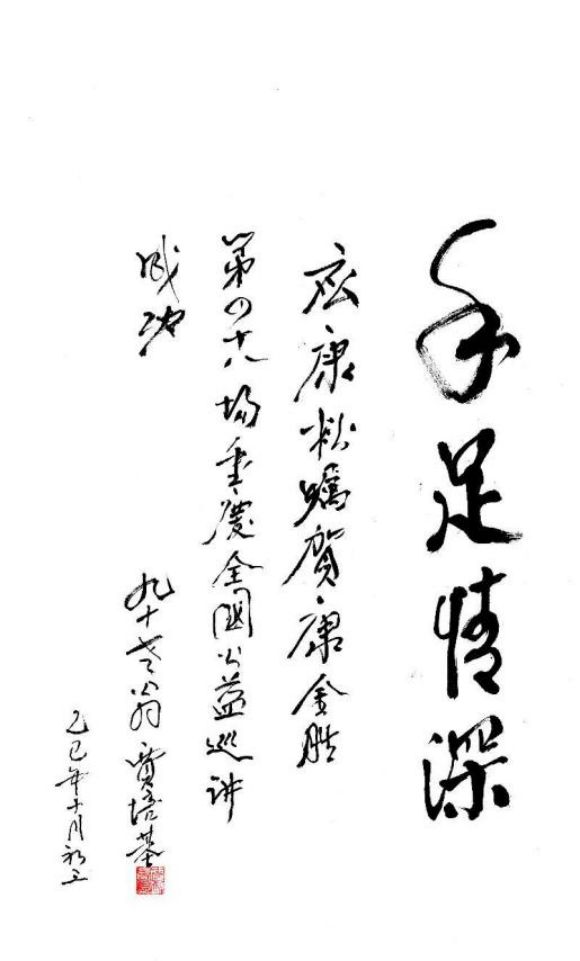 手足情深
应康松嘱贺康金胜
第四十八场重慶全國公益巡讲
成功
九十老翁 賈培基
乙巳年十月初三